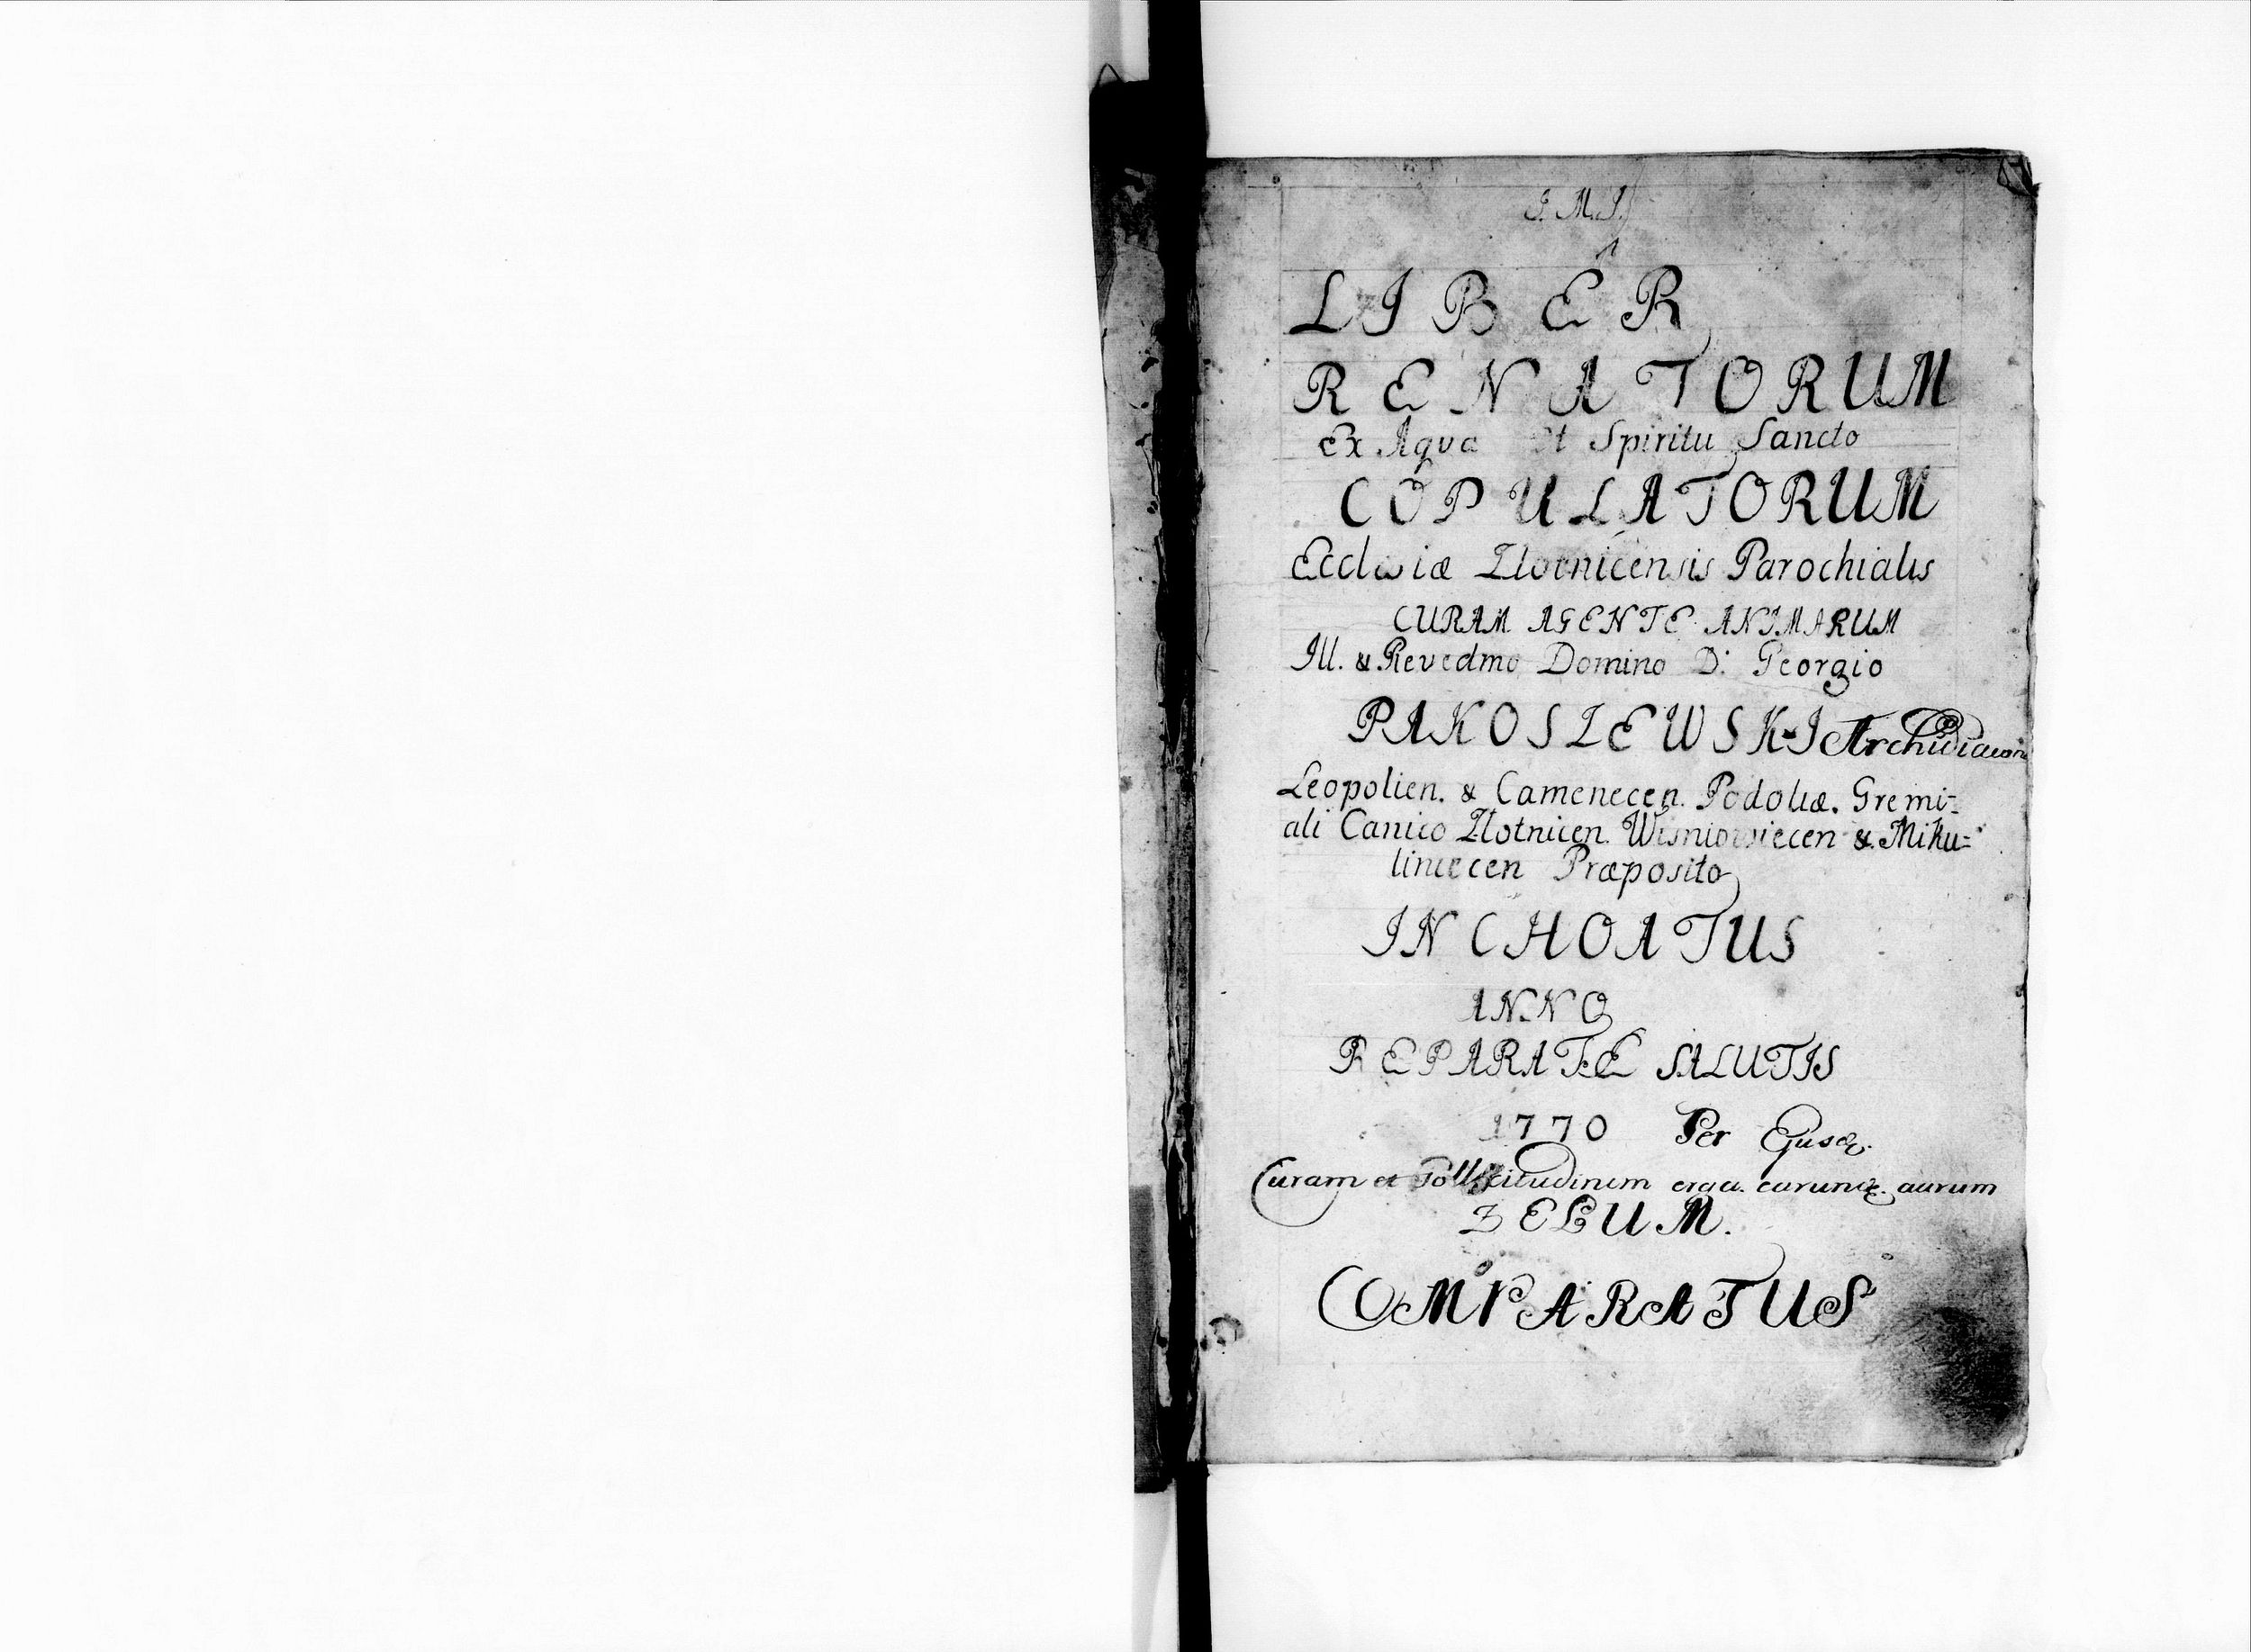 J. M. J.
LIBER
RENATORUM
Ex Aqva Et Spiritu Sancto
COPULATORUM
Ecclesiæ Zlotnicensis Parochialis
CURAM AGENTE ANIMARUM
Ill. & Revedmo Domino D: Georgio
PAKOSZEWSKI Archidiacono
Leopolien. & Camenecen. Podoliæ. Gremi-
ali Canico Zlotnicen. Wisniowiecen & Miku=
liniecen Præposito
INCHOATUS
ANNO
REPARATÆ SALUTIS
1770 Per Ejusq.
Curam et Sollicitudinem erga earunq. aurum
ZELUM.
COMPARATUS